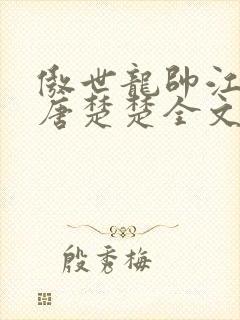 傲世龍帥江
唐楚楚全文
殷秀梅